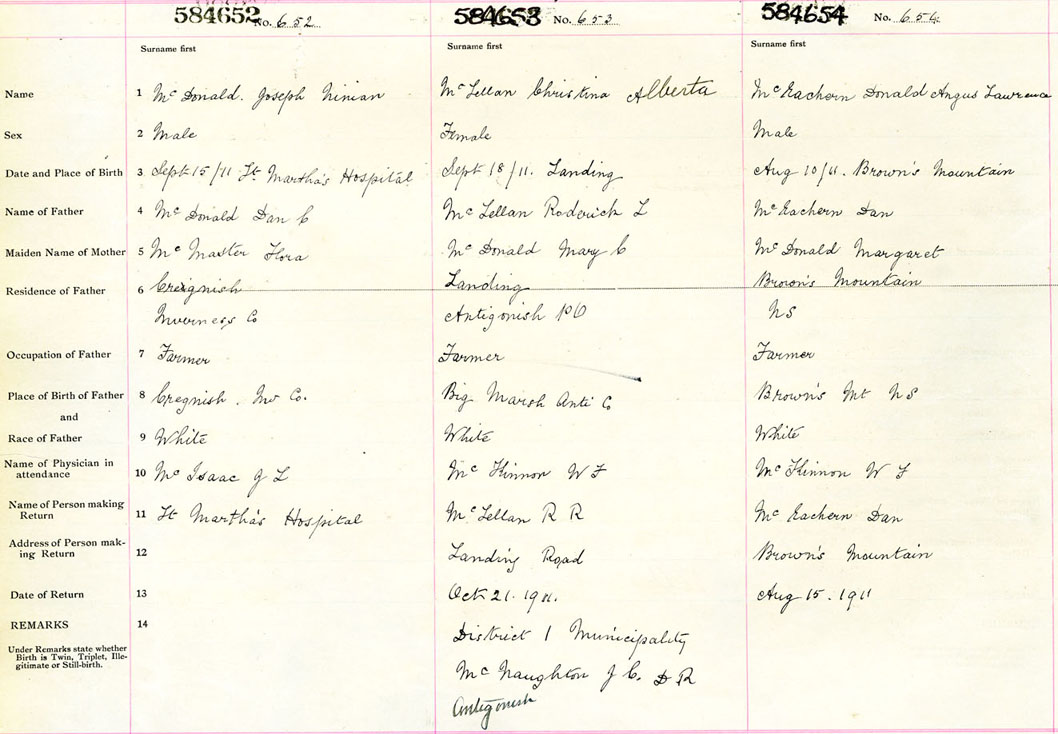 584652 No. 652 584653 No. 653 584654 No. 654
Surname first Surname first Surname first
Name 1 McDonald. Joseph Ninian McLellan Christina Alberta McEachern Donald Angus Lawrence
Sex 2 Male Female Male
Date and Place of Birth 3 Sept 15/11 St. Martha's Hospital Sept 18/11. Landing Aug 10/11. Brown's Mountain
Name of Father 4 McDonald Dan C McLellan Roderick L McEachern Dan
Maiden Name of Mother 5 McMaster Flora McDonald Mary C McDonald Margaret
Residence of Father 6 Creignish Landing Brown's Mountain
Inverness Co Antigonish PO NS
Occupation of Father 7 Farmer Farmer Farmer
Place of Birth of Father 8 Cregnish. Inv Co. Big Marsh Anti Co Brown's Mt NS
and
Race of Father 9 White White White
Name of Physician in
attendance 10 McIsaac J L McKinnon W F McKinnon W F
Name of Person making
Return 11 St Martha's Hospital McLellan R R McEachern Dan
Address of Person mak-
ing Return 12 Landing Road Brown's Mountain
Date of Return 13 Oct 21. 1911. Aug 15. 1911
REMARKS 14 District 1 Municipality
Under Remarks state whether
Birth is Twin, Triplet, Ille-
gitimate or Still-birth.
McNaughton J C. D R
Antigonish